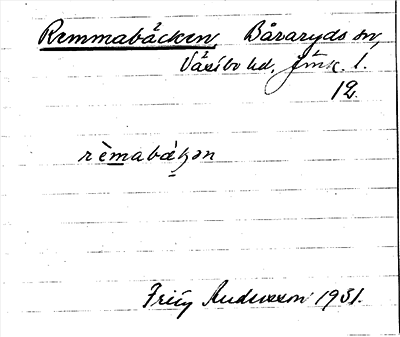 Remmabäcken, Båraryds sn,
Västbo hd, Jönk. l.
12
rèmabäkən
Fritz Andersson 1931.